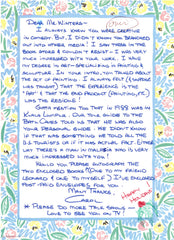 Dear Mr. Winters -
I always knew you were creative
in comedy. But, I didn't know you branched
out into other media! I saw them in the
book and I couldn't resist - I was very
much impressed with your work. I have
my degree in art - specializing in painting &
sculpture. In your intro. you talked about the
art of painting. I always felt (& maybe
was taught) that the experience is the
"art" & that the end product (painting, etc.)
was the residue!
Gotta mention too that in 1988 was in
Kuala Lumpur. Our tour guide to the
Batu Caves told us that he was also
your personal guide. We didn't know
if that was something he told all the
U.S. tourists or if it was actual fact. Either
way there's a man in Malaysia who is very
much impressed with you!
Would you please autograph the
two enclosed books (one to my friend
& one to myself.) I've enclosed
post-paid envelopes for you.
Many Thanks,
Carol
* Please do more talk shows -
Love to see you on TV!